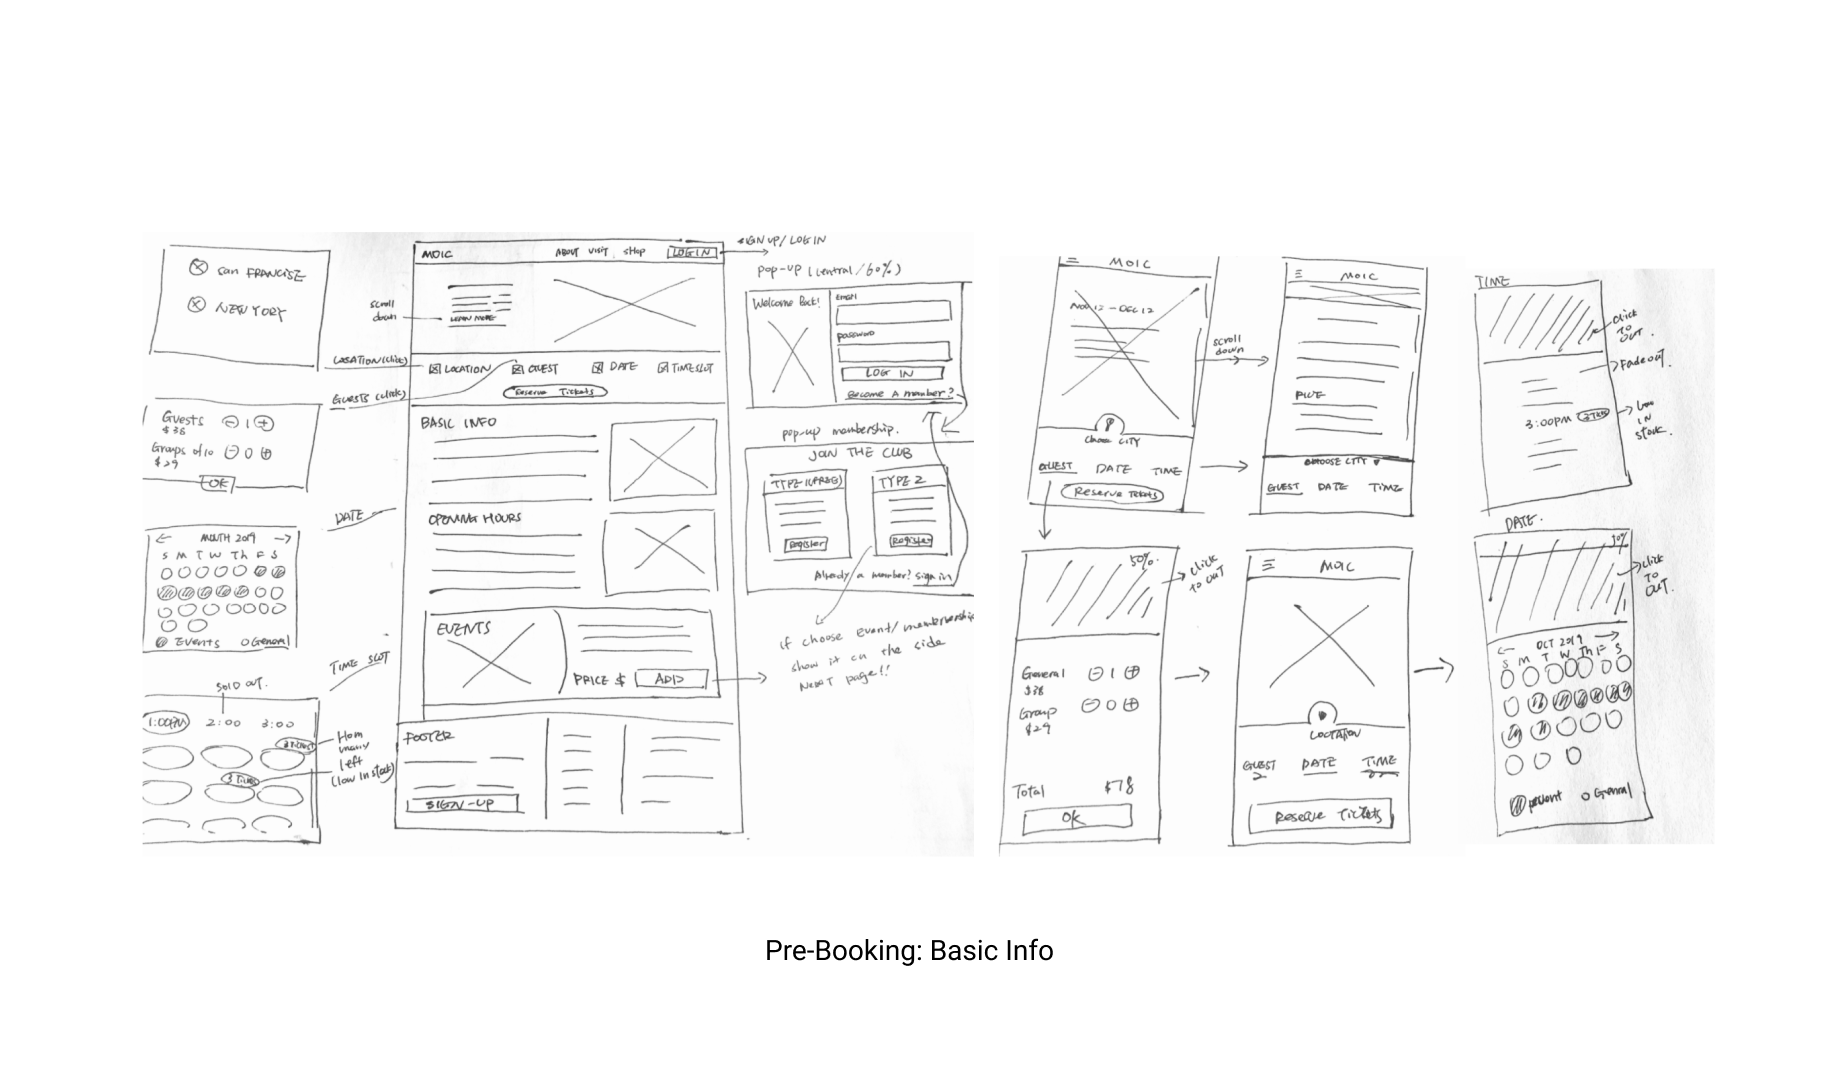 San FRANCISCE
NEW YORK
Guests ⊖ 1 ⊕
$38
Groups of 10 ⊖ 0 ⊕
$29
OK
← MONTH 2019 →
S M T W Th F S
Events General
SOLD OUT.
1:00PM 2:00 3:00
3 Tickets
How
many
left
(low in stock)
scroll
down
LOCATION (click)
GUESTS (click)
DATE
TIME SLOT
MOIC ABOUT VISIT SHOP LOG IN
LEARN MORE
LOCATION GUEST DATE TIMESLOT
Reserve Tickets
BASIC INFO
OPENING HOURS
EVENTS
PRICE $ ADD
FOOTER
SIGN-UP
SIGN UP / LOG IN
pop-up (central / 60%)
Welcome Back!
Email
password
LOG IN
Become A member?
pop-up membership.
JOIN THE CLUB
TYPE 1 (FREE) TYPE 2
Register Register
Already a member? sign in
if choose event/membership
show it on the side
NEXT page!!
MOIC
NOV 12 - DEC 12
Choose CITY
GUEST DATE TIME
Reserve Tickets
scroll
down
MOIC
CHOOSE CITY
GUEST DATE TIME
50%.
click
to out
General ⊖ 1 ⊕
$38
Group ⊖ 0 ⊕
$29
Total $78
OK
MOIC
LOCATION
GUEST DATE TIME
Reserve Tickets
TIME
click
TO
OUT.
Fade out.
3:00PM
Low
IN
stock.
DATE.
50%
click
TO
OUT.
← OCT 2019 →
S M T W Th F S
General
Pre-Booking: Basic Info